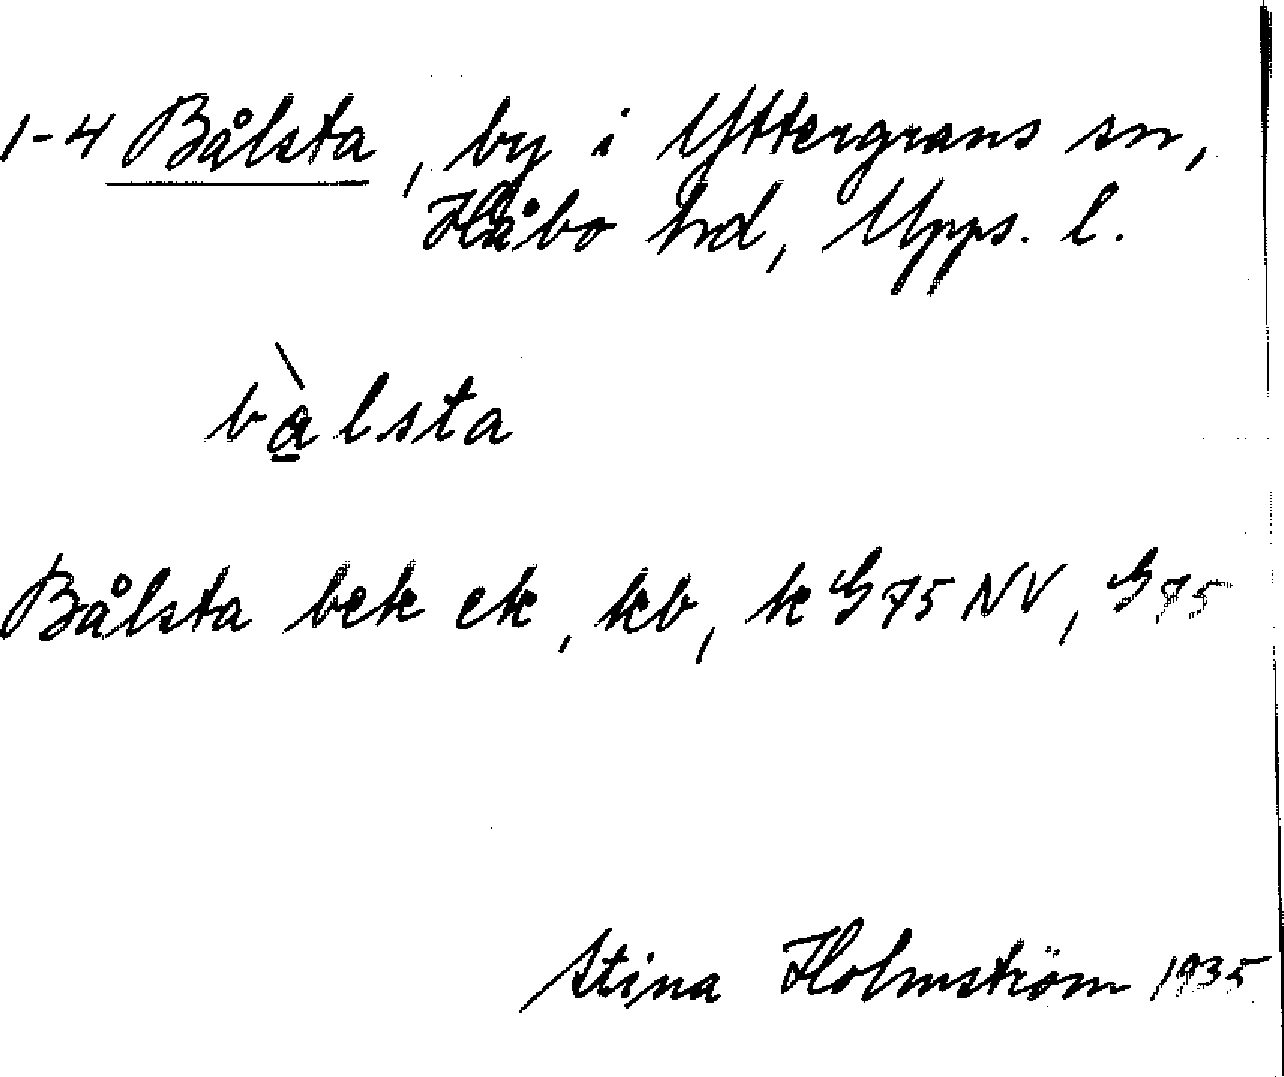 1-4 Bålsta, by i Yttergrans sn,
Håbo hd, Upps. l.
bàlsta
Bålsta bek ek, kb, k G 75 NV, G 75
Stina Holmström 1935